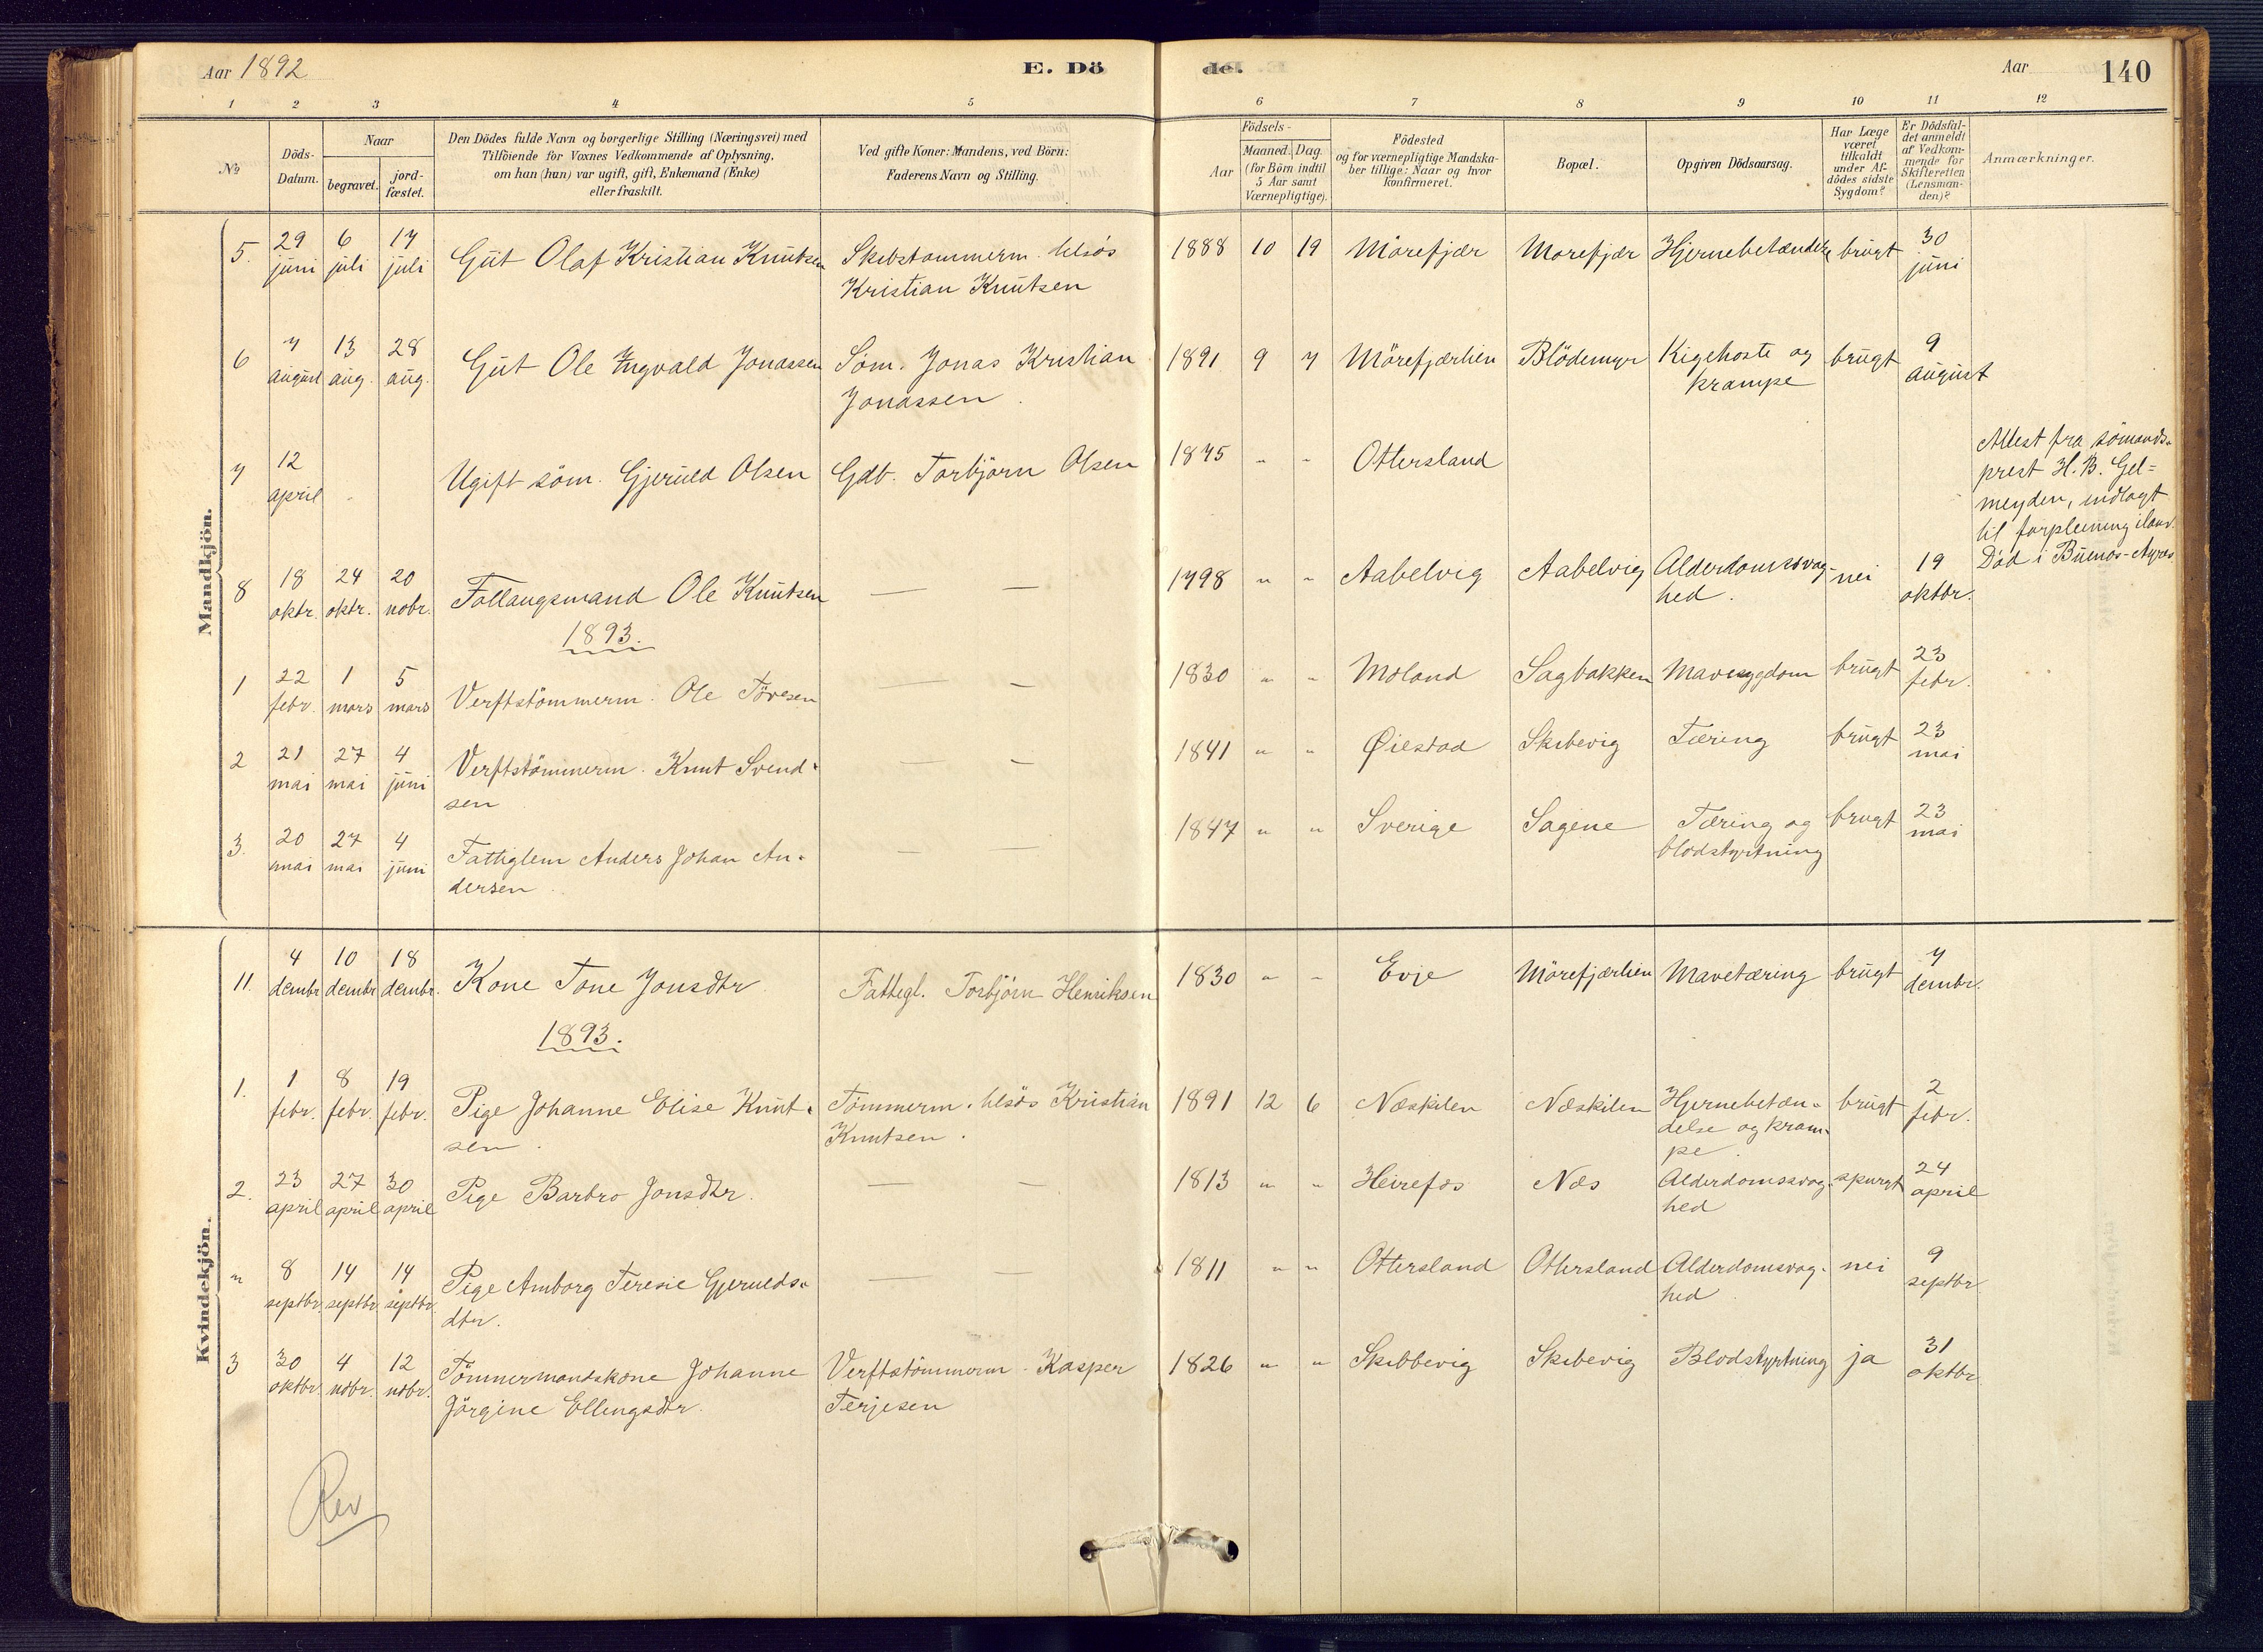 Aar 1892
E. Dö de.
Aar 140
1 2 3 4 5 6 7 8 9 10 11 12
No
Döds-Datum.
Naar
begravet. jordfæstet.
Den Dödes fulde Navn og borgerlige Stilling (Næringsvei) med
Tilföiende for Voxnes Vedkommende af Oplysning,
om han (hun) var ugift, gift, Enkemand (Enke)
eller fraskilt.
Ved gifte Koner: Mandens, ved Börn:
Faderens Navn og Stilling.
Födsels-
Aar
Maaned. Dag.
(for Börn indtil
5 Aar samt
Værnepligtige).
Födested
og for værnepligtige Mandska-
ber tillige: Naar og hvor
konfirmeret.
Bopæl.
Opgiven Dödsaarsag.
Har Læge
været
tilkaldt
under Af-
dödes sidste
Sygdom?
Er Dödsfal-
det anmeldt
af Vedkom-
mende for
Skifteretten
(Lensman-
den)?
Anmærkninger.
Mandkjön.
5. 29 juni 6 juli 17 juli Gut Olaf Kristian Knutsen Skibstømmerm. Kristian Knutsen 1888 10 19 Mörefjær Morefjær Hjernebetændelse brugt 30 juni
6 7 august 13 aug. 28 aug. Gut Ole Yngvald Jonassen Søm. Jonas Kristian Jonassen 1891 9 7 Mörefjærhien Blödemyr Kigehoste og krampe brugt 9 august
7 12 april Ugift söm. Gjeruld Olsen Gdb. Torbjörn Olsen 1875 " " Ottersland
Attest fra sömands-
prest H. B. Gel=
meyden, indlagt
til forpleining iland.
Død i Buenos-Ayres
8 18 oktr. 24 oktr. 20 nobr. Føllaugsmand Ole Knutsen — — 1798 " " Aabelvig Aabelvig Alderdomssvag-hed. nei 19 oktbr.
1893.
1 22 febr. 1 mars 5 mars Verftstömmerm. Ole Tövesen — — 1830 " " Moland Sagbakken Mavesygdom brugt 23 febr.
2 21 mai 27 mai 4 juni Verftstömmerm. Knut Svend-
sen — — 1841 " " Øiestad Skibevig Tæring brugt 23 mai
3. 20 mai 27 mai 4 juni Fattiglem Anders Johan An-
dersen — — 1847 " " Sverige Sagene Tæring og blodstyrtning brugt 23 mai
Kvindekjön.
11. 4 dembr 10 dembr 18 dembr. Kone Tone Jonsdtr Fattigl. Torbjörn Henriksen 1830 " " Evje Mörefjærhien Mavetæring brugt 7 dembr.
1893.
1. 1 febr. 8 febr. 19 febr. Pige Johanne Elise Knut-
sen. Tömmerm. Kristian Knutsen. 1891 12 6 Næskilen Næskilen Hjernebetæn-
delse og kram-
pe. brugt 2 febr.
2. 23 april 27 april 30 april Pige Barbro Jonsdtr. — — 1813 " " Heirefos Næs Alderdomssvag-
hed spurgt 24 april
" 8 septbr. 14 septbr. 14 septbr. Pige Amborg Teresie Gjerulds-
dtr. — — 1811 " " Ottersland Ottersland Alderdomsvag-
hed nei 9 septbr
3 30 oktbr. 4 nobr. 12 nobr. Tömmermandskone Johanne
Jörgine Ellingsdtr. Verftstömmerm. Kasper
Terjesen 1826 " " Skibbevig Skibevig Blodstyrtning ja 31 oktbr
Rev